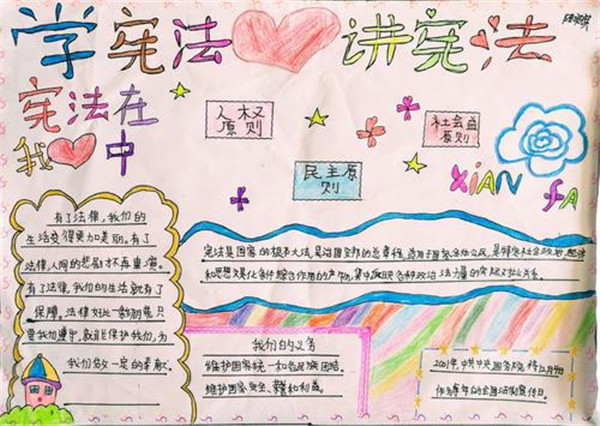 学宪法 讲宪法
宪法在
我 中
人权
原则
社会益
原则
民主原
则
XIAN FA
有了法律,我们的
生活变得更加美丽。有了
法律,人间的悲剧才不再重演。
有了法律,我们的生活就有了
保障。法律好比一
要我们遵守,就能保护我们,为
我们做一定的奉献。
宪法是国家的根本大法,是治国安邦的总章程,适用于国家全体公民,是特定社会政治、经济
和思想文化条件综合作用的产物,集中反映各种政治力量的实际对比关系。
我们的义务
维护国家统一和各民族团结。
维护国家安全、荣誉和利益。
2001年,中共中央、国务院将12月4日
作为每年的全国法制宣传日。